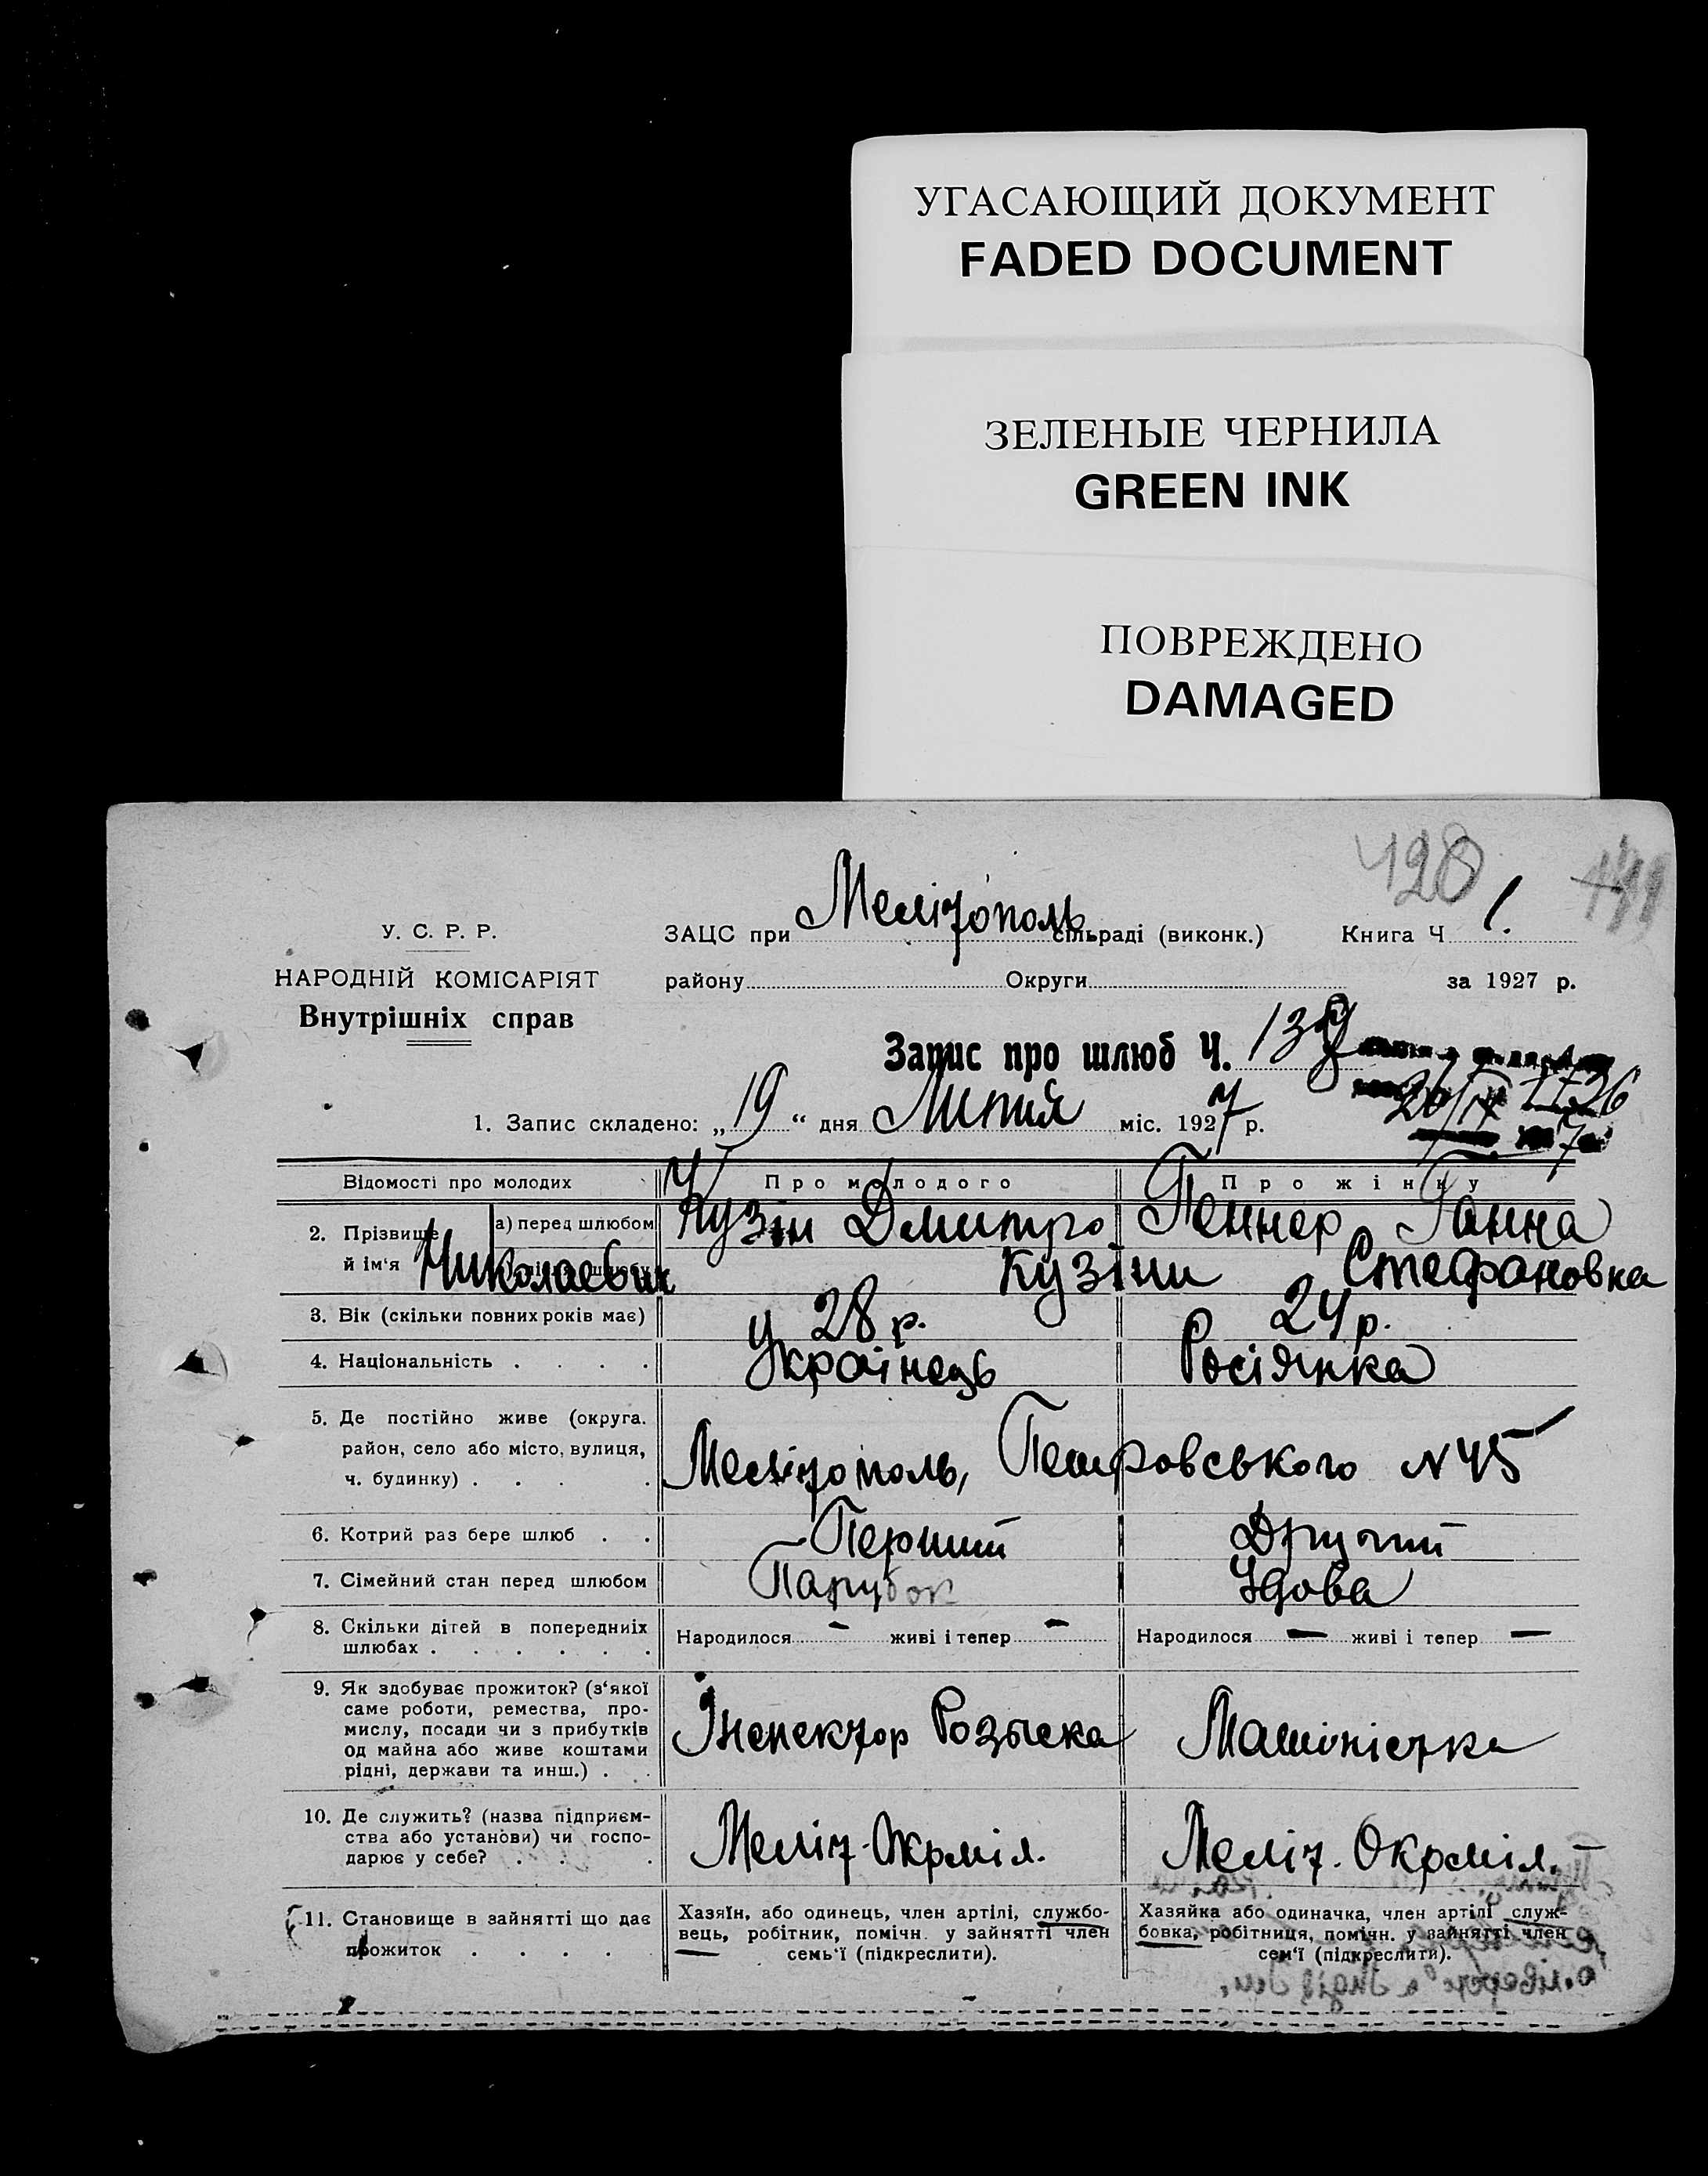 УГАСАЮЩИЙ ДОКУМЕНТ
FADED DOCUMENT
ЗЕЛЕНЫЕ ЧЕРНИЛА
GREEN INK
ПОВРЕЖДЕНО
DAMAGED
428
У. С. Р. Р.
НАРОДНІЙ КОМІСАРІЯТ
Внутрішніх справ
ЗАЦС при Мелітополь сільраді (виконк.) Книга Ч 1.
району Округи за 1927 р.
Запис про шлюб Ч. 139
1. Запис складено: „19“ дня Липня міс. 1927 р.
Відомості про молодих Про молодого Про жінку
2. Прізвище й ім‘я а) перед шлюбом Кузін Дмитро Пеннер Ганна
Николаевич Кузіни Стефановка
3. Вік (скільки повних років має) 28 р. 24 р.
4. Національність . . . . Українець Росіянка
5. Де постійно живе (округа.
район, село або місто, вулиця,
ч. будинку) . . . . Мелітополь, Петровського N 45
6. Котрий раз бере шлюб . . Перший Другий
7. Сімейний стан перед шлюбом Парубок Удова
8. Скільки дітей в попередніх
шлюбах . . . . . . Народилося – живі і тепер – Народилося – живі і тепер –
9. Як здобуває прожиток? (з‘якої
саме роботи, ремества, про-
мислу, посади чи з прибутків
од майна або живе коштами
рідні, держави та инш.) . . Інспектор Розыска Машіністка
10. Де служить? (назва підприєм-
ства або установи) чи госпо-
дарює у себе? . . . Меліт. Окрміл. Меліт. Окрміл.
11. Становище в зайнятті що дає
прожиток . . . . .
Хазяїн, або одинець, член артілі, службо-
вець, робітник, помічн. у зайнятті член
семь‘ї (підкреслити).
Хазяйка або одиначка, член артілі служ-
бовка, робітниця, помічн. у зайнятті член
сем‘ї (підкреслити).